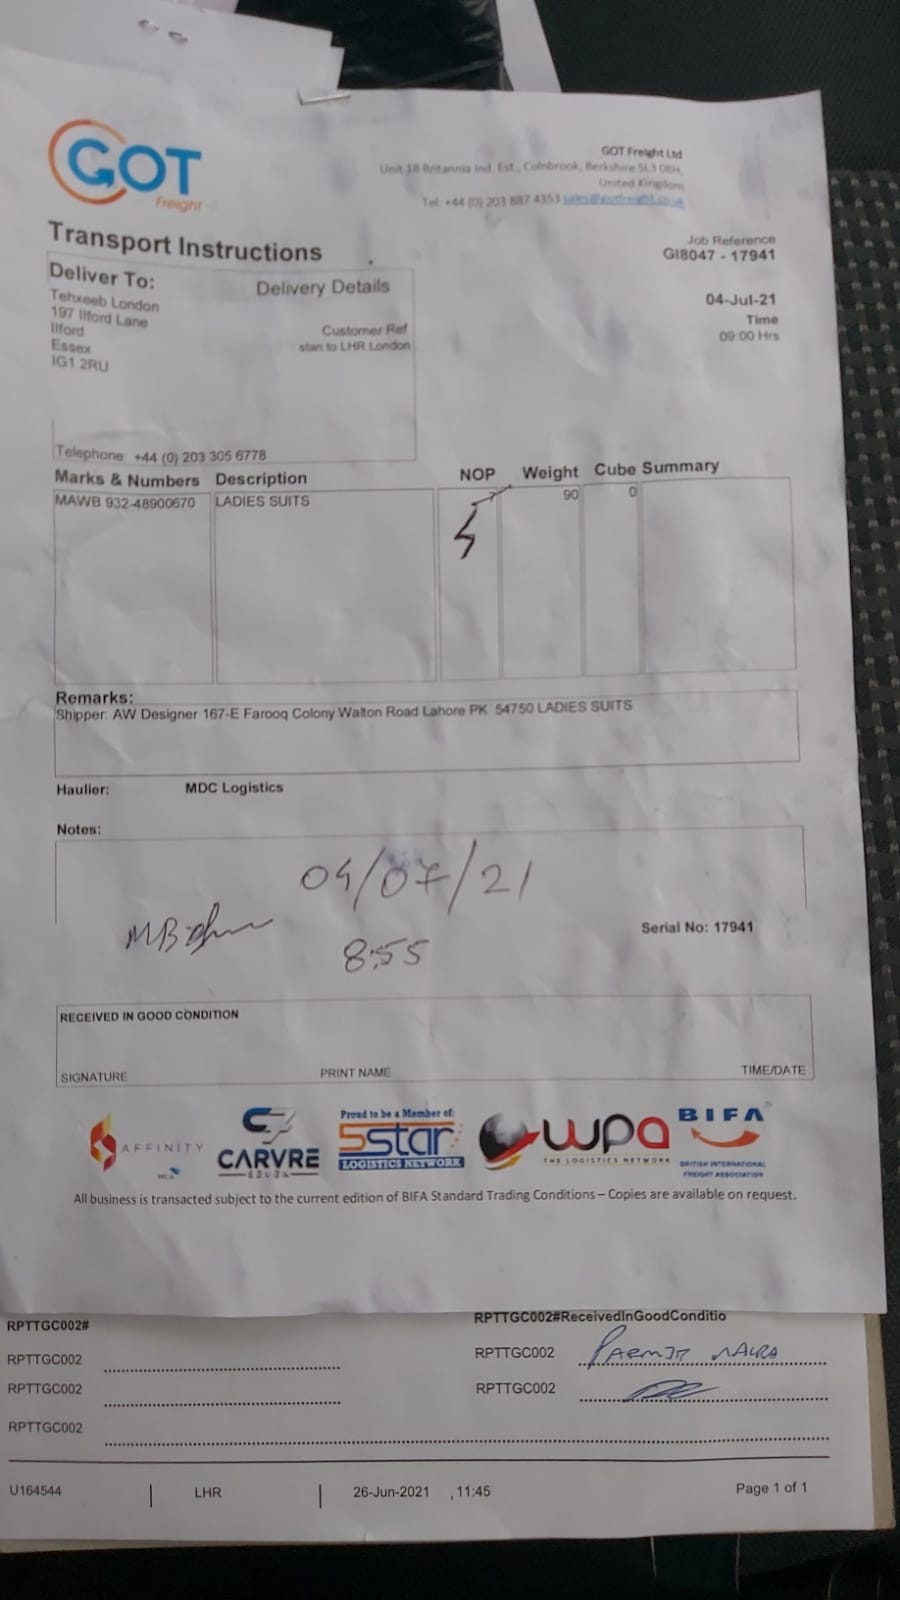 GOT
Freight
GOT Freight Ltd
Unit 18 Britannia Ind. Est., Colnbrook, Berkshire SL3
United Kingdom
Tel: +44 (0) 203 887 4353 sales@gotfreight.co.uk
Transport Instructions
Job Reference
GI8047 - 17941
Deliver To:
Delivery Details
Tehxeeb London
197 Ilford Lane
Ilford
Essex
IG1 2RU
Customer Ref
stan to LHR London
04-Jul-21
Time
09:00 Hrs
Telephone: +44 (0) 203 305 6778
Marks & Numbers Description NOP Weight Cube Summary
MAWB 932-48900670 LADIES SUITS 7 90 0
Remarks:
Shipper: AW Designer 167-E Farooq Colony Walton Road Lahore PK 54750 LADIES SUITS
Haulier: MDC Logistics
Notes:
04/07/21
8:55
Serial No: 17941
RECEIVED IN GOOD CONDITION
SIGNATURE PRINT NAME TIME/DATE
AFFINITY
WCA
CARVRE
Proud to be a Member of:
5star
LOGISTICS NETWORK
wpa
THE LOGISTICS NETWORK
BIFA
BRITISH INTERNATIONAL
FREIGHT ASSOCIATION
All business is transacted subject to the current edition of BIFA Standard Trading Conditions – Copies are available on request.
RPTTGC002# RPTTGC002#ReceivedInGoodConditio
RPTTGC002 RPTTGC002 PARMJIT
RPTTGC002 RPTTGC002
RPTTGC002
U164544 | LHR | 26-Jun-2021 , 11:45 Page 1 of 1